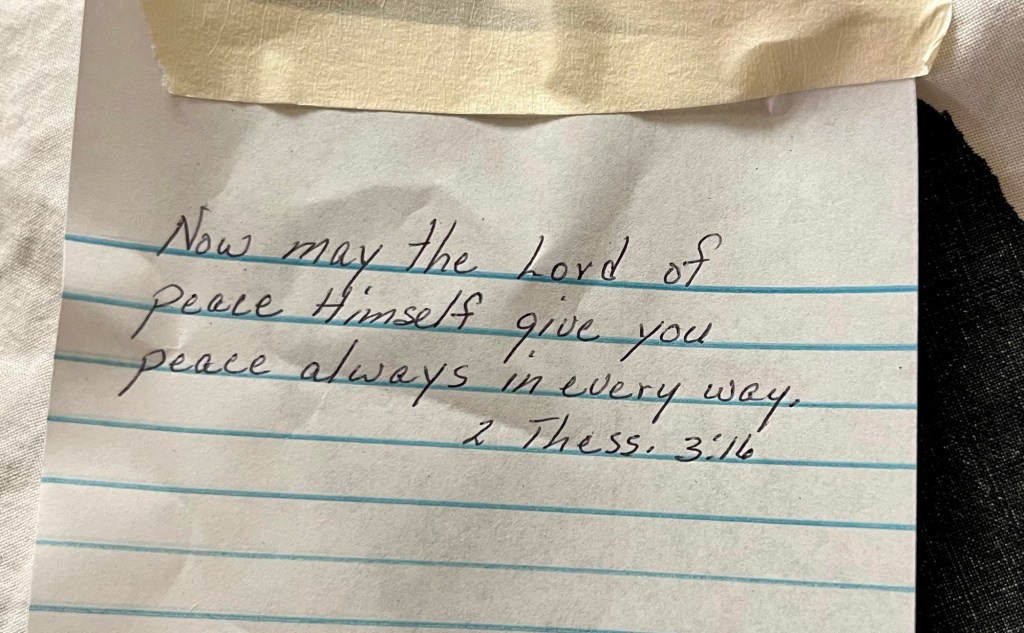 Now may the Lord of
peace Himself give you
peace always in every way.
2 Thess. 3:16